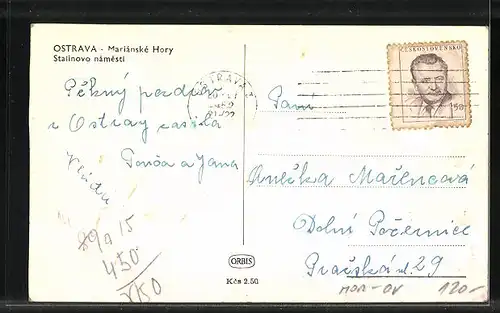 OSTRAVA - Mariánské Hory
Stalinovo náměstí
Pěkný pozdrav
z Ostravy zasílá
Tonča a Jana
Vláďa
ČESKOSLOVENSKO
1.50
OSTRAVA
Paní
Anežka Mařencová
Dolní Počernice
Pražská ul. 29
ORBIS
Kčs 2.50
450
MOR-OV
120.-